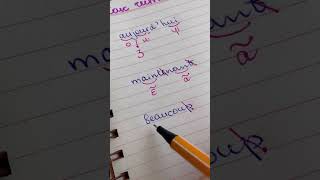 aujourd'hui
o u ɥi
ʒ
maintenant
ɛ̃ ã
beaucoup